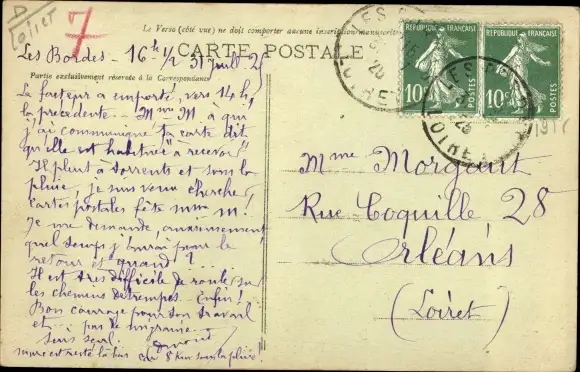 Loiret
7
Le Verso (côté vue) ne doit comporter aucune inscription manuscrite
CARTE POSTALE
Les Bordes - 16h 1/2 31 Juill 25
Partie exclusivement réservée à la Correspondance
Le facteur a emporté, vers 14h,
la précédente - Mme M à qui
j'ai communiqué ta carte dit
qu'elle est habituée "à recevoir"
Il pleut à torrents et sous la
pluie, je suis venu chercher
cartes postales fête Mme M!
Je me demande, anxieusement
quel temps j'aurai pour le
retour et quand?
Il est très difficile de rouler sur
les chemins détrempés. Enfin!
Bon courage pour ton travail
et pas de migraine.
8 km sous la pluie
RÉPUBLIQUE FRANÇAISE
10c
POSTES
RÉPUBLIQUE FRANÇAISE
10c
POSTES
LES BORDES
LOIRET
Mme Morgant
Rue Coquille 28
Orléans
(Loiret)